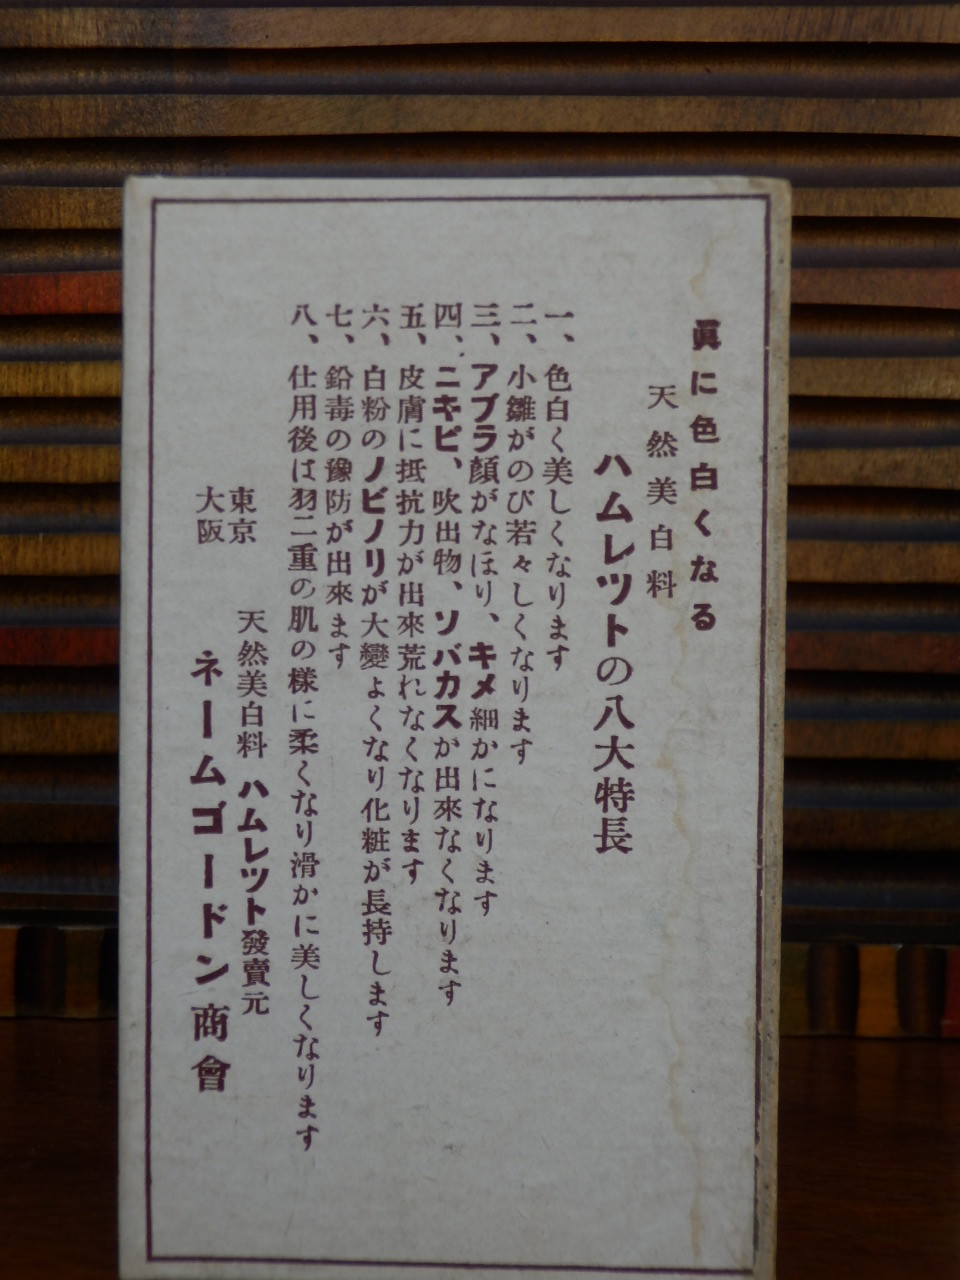 眞に色白くなる
天然美白料
ハムレツトの八大特長
一、色白く美しくなります
二、小雛がのび若々しくなります
三、アブラ顔がなほり、キメ細かになります
四、ニキビ、吹出物、ソバカスが出來なくなります
五、皮膚に抵抗力が出來荒れなくなります
六、白粉のノビノリが大變よくなり化粧が長持します
七、鉛毒の豫防が出來ます
八、仕用後は羽二重の肌の樣に柔くなり滑かに美しくなります
東京
大阪
天然美白料 ハムレツト發賣元
ネームゴードン商會